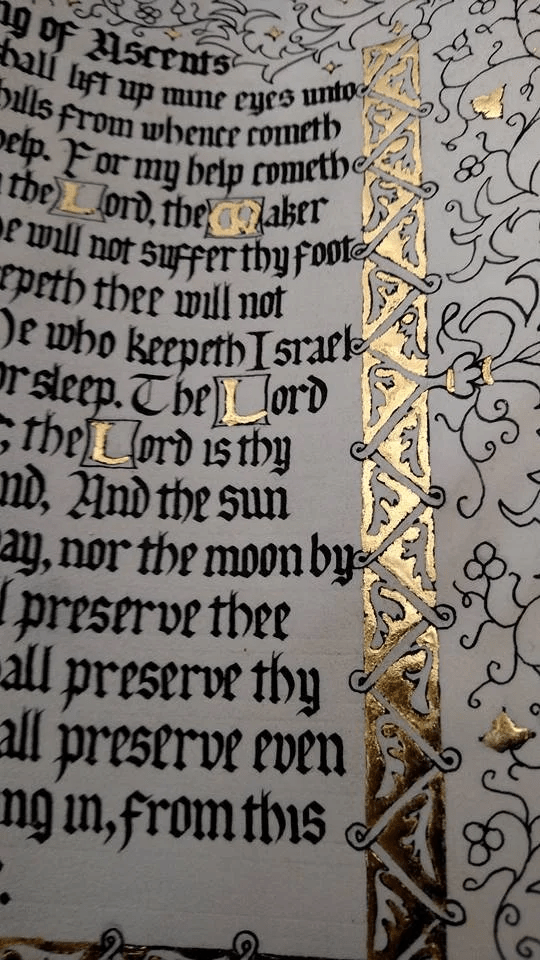 ng of Ascents
hall lift up mine eyes unto
hills from whence cometh
help. For my help cometh
the Lord, the Maker
e will not suffer thy foot
eepeth thee will not
He who keepeth Israel
or sleep. The Lord
; the Lord is thy
nd, And the sun
ay, nor the moon by
l preserve thee
all preserve thy
all preserve even
ng in, from this
.